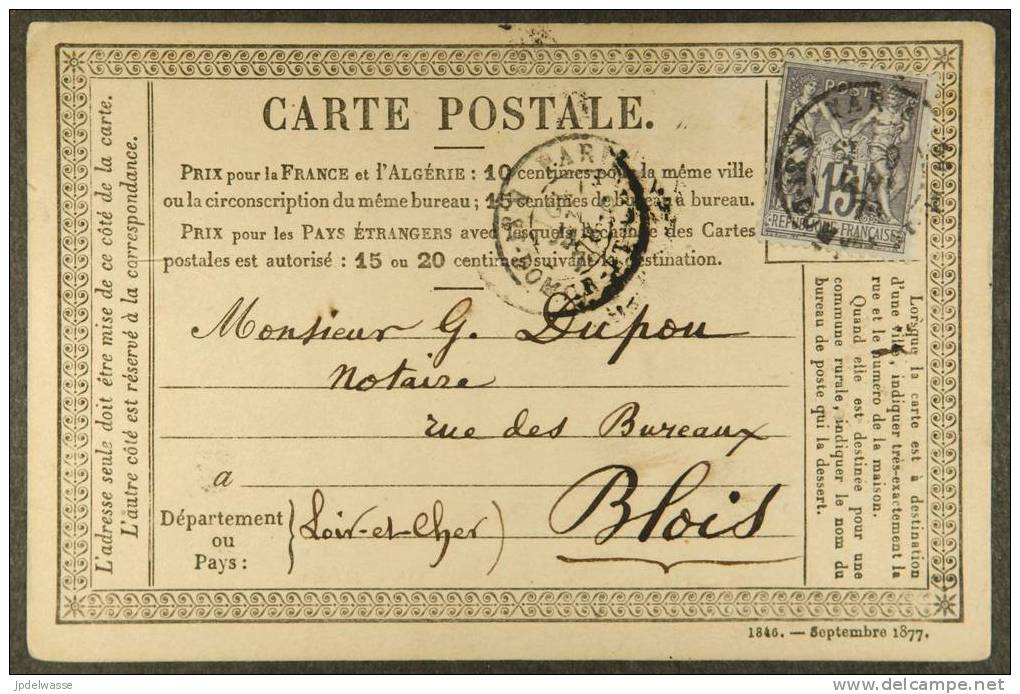 CARTE POSTALE.
PRIX pour la FRANCE et l'ALGÉRIE : 10 centimes pour la même ville
ou la circonscription du même bureau ; 15 centimes de bureau à bureau.
PRIX pour les PAYS ÉTRANGERS avec lesquels l'échange des Cartes
postales est autorisé : 15 ou 20 centimes suivant la destination.
POSTES
15
REPUBLIQUE FRANÇAISE
PARIS
PARIS
L'adresse seule doit être mise de ce côté de la carte.
L'autre côté est réservé à la correspondance.
Monsieur G. Dupou
Notaire
rue des Bureaux
a Blois
Département
ou
Pays :
(Loir-et-Cher)
Lorsque la carte est à destination
d'une ville, indiquer très-exactement la
rue et le numéro de la maison.
Quand elle est destinée pour une
commune rurale, indiquer le nom du
bureau de poste qui la dessert.
1846. — Septembre 1877.
jpdelwasse
delcampe.net